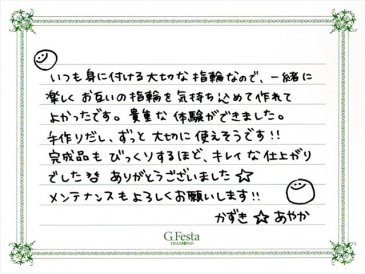 いつも身に付ける大切な指輪なので、一緒に
楽しくお互いの指輪を気持ち込めて作れて
よかったです。貴重な体験ができました。
手作りだし、ずっと大切に使えそうです!!
完成品もびっくりするほど、キレイな仕上がり
でした ありがとうございました☆
メンテナンスもよろしくお願いします!!
かずき☆あやか
G.Festa
DIAMOND